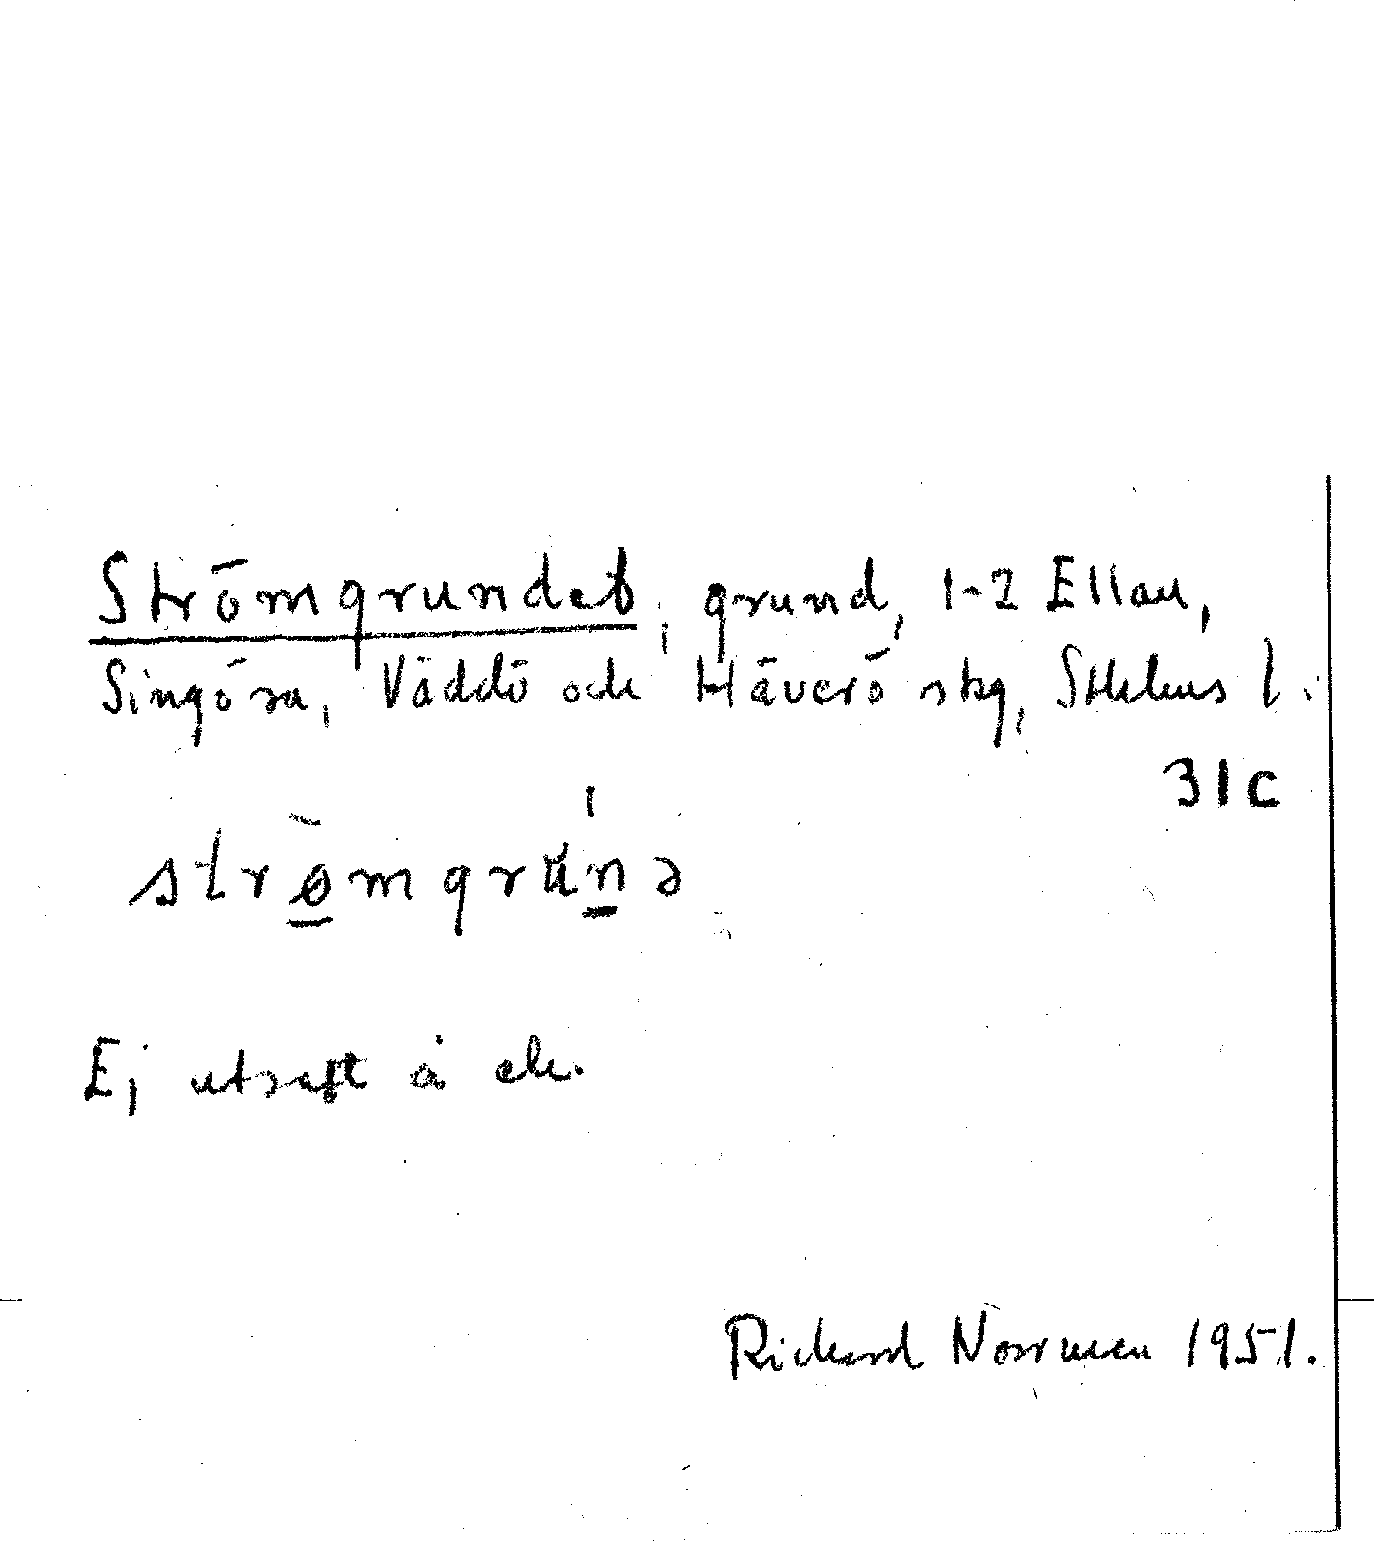 Strömgrundet, grund, 1-2 Ellan,
Singö sn, Väddö och Häverö skg, Sthlms l.
31 c
strømgrunə
Ej utsatt å ek.
Rickard Norrman 1951.